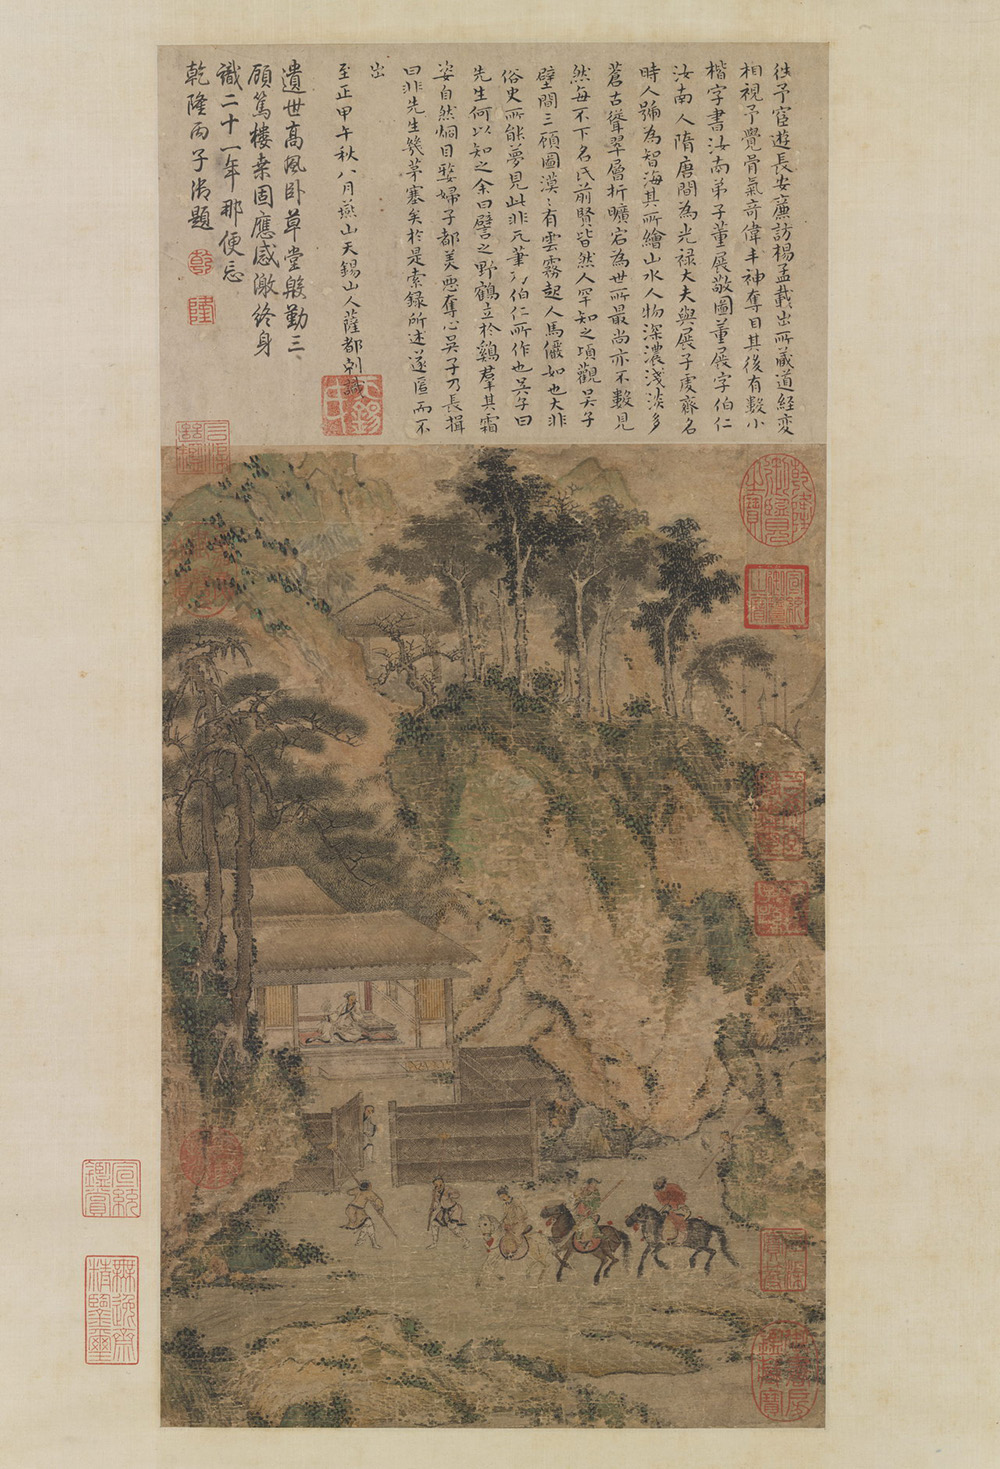 往予宦遊長安廉訪楊孟載出所藏道經變
相視予覺骨氣奇偉丰神奪目其後有數小
楷字書汝南弟子董展敬圖董展字伯仁
汝南人隋唐間為光祿大夫與展子虔齊名
時人號為智海其所繪山水人物深濃淺淡多
蒼古聳翠層折曠宕為世所最尚亦不數見
然每不下名氏前賢皆然人罕知之頃觀吳子
壁間三顧圖漠漠有雲霧起人馬儼如也大非
俗史所能夢見此非凡筆乃伯仁所作也吳子曰
先生何以知之余曰譬之野鶴立於鷄羣其霜
姿自然炯目嫠婦子都美惡奪心吳子乃長揖
曰非先生幾茅塞矣於是索錄所述遂匾而不
出
至正甲午秋八月燕山天錫山人薩都剌識
遺世高風卧草堂殷勤三
顧篤棲桒固應感激終身
識二十一年那便忘
乾隆丙子御題
乾
隆
乾隆御覽之寶
宣統御覽之寶
宣統鑑賞
無逸齋精鑒璽